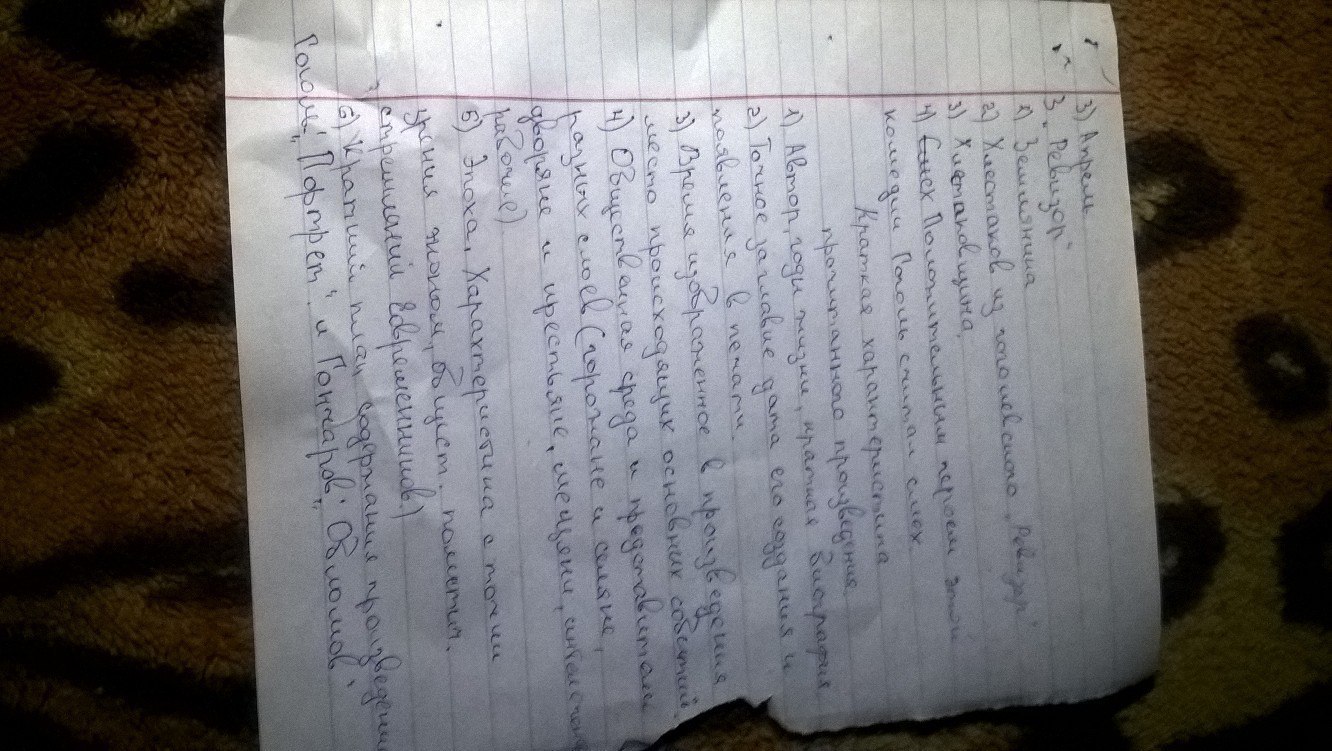 3) Апрель
3. „Ревизор"
1) Земляника
2) Хлестаков из гоголевского „Ревизор"
3) Хлестаковщина.
4) Смех Положительным героем этой
комедии Гоголь считал смех
Краткая характеристика
прочитанного произведения
1) Автор, годы жизни, краткая биография
2) Точное заглавие дата его создания и
появления в печати.
3) Время изображенное в произведении
место происходящих основных событий.
4) Общественная среда и представители
разных слоев (горожане и селяне,
дворяне и крестьяне, мещяни,
рабочие)
5) Эпоха, Характеристика с точки
зрения эконом, общест. политич.
стремлений современников.)
6) Краткий план содержания произведения
Гоголь „Портрет" и Гончаров „Обломов"